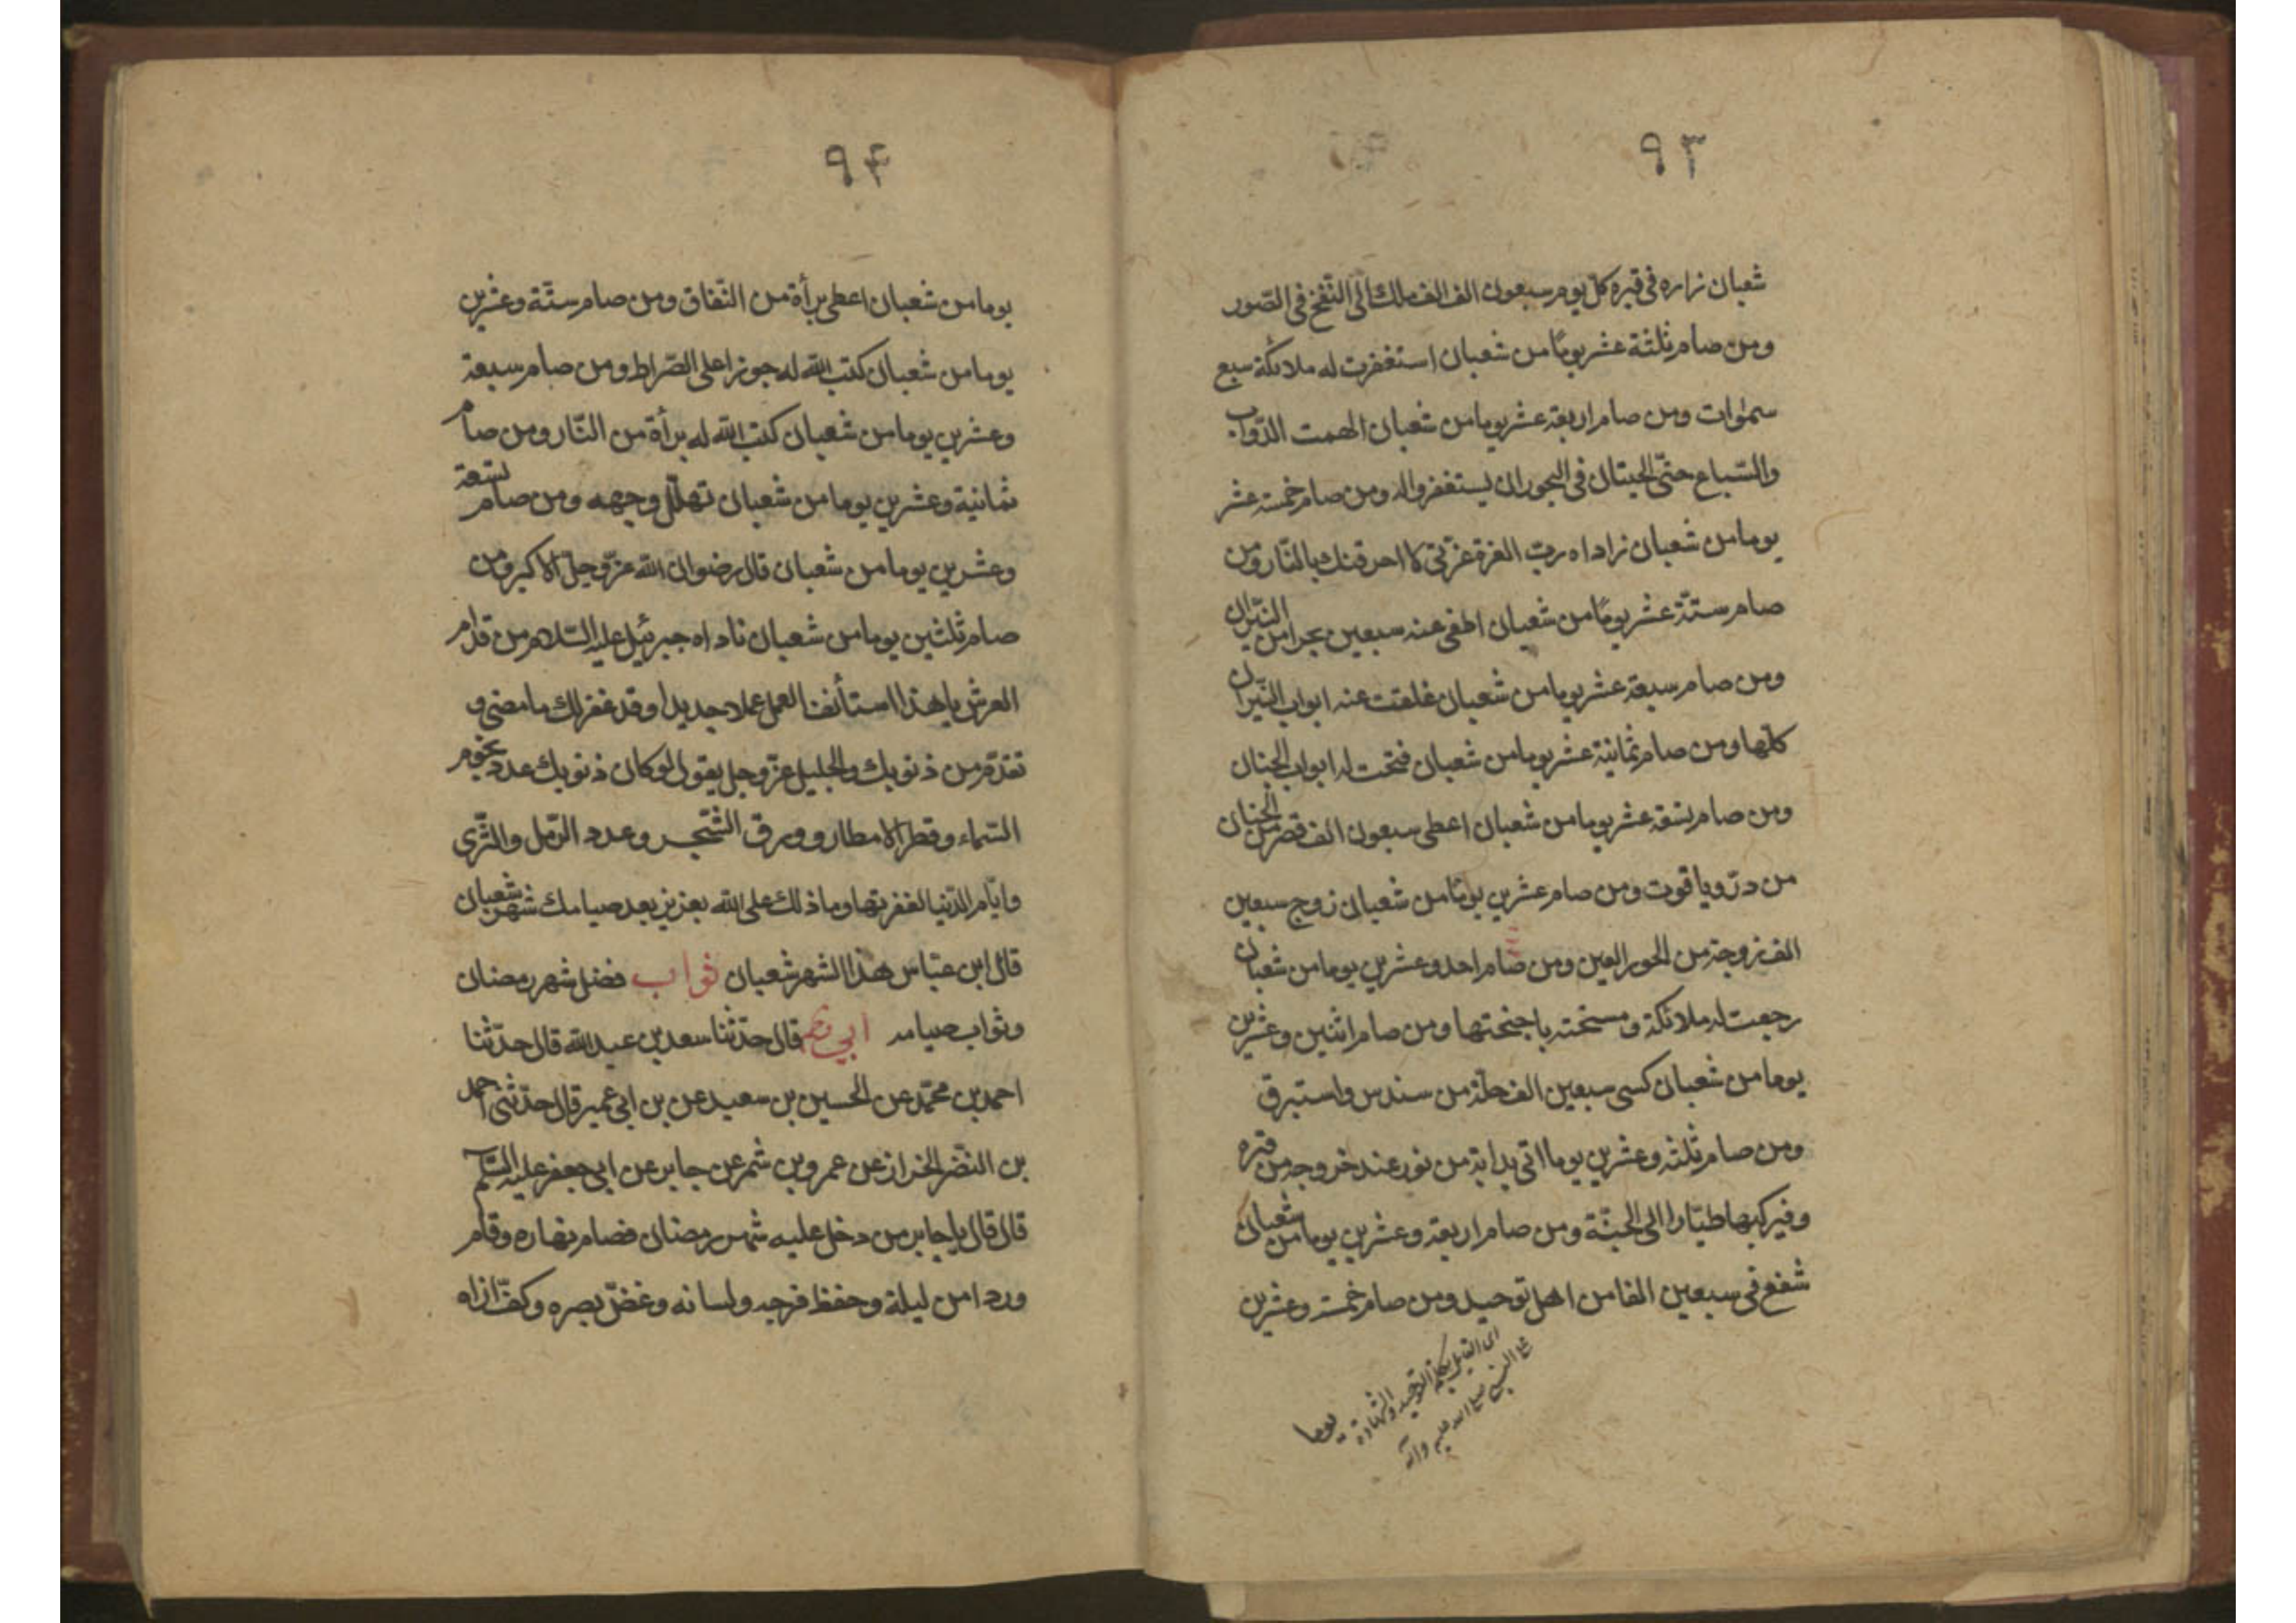 ۹۳
شعبان زاره فى قبره كل يوم سبعون الف الف ملك الى النفخ فى الصّور
ومن صام ثلثة عشر يومًا من شعبان استغفرت له ملائكة سبع
سموات ومن صام اربعة عشر يوما من شعبان الهمت الدّواب
والسّباع حتّى الحيتان فى البحور ان يستغفروا له ومن صام خمسة عشر
يوما من شعبان ناداه ربّ العزة عزّتى لا احرقنك بالنّار ومن
صام ستّة عشر يومًا من شعبان اطفى عنه سبعين بحرا من النّيران
ومن صام سبعة عشر يوما من شعبان غلقت عنه ابواب النّيران
كلّها ومن صام ثمانية عشر يوما من شعبان فتحت له ابواب الجنان
ومن صام تسعة عشر يوما من شعبان اعطى سبعون الف قصر من الجنان
من درّ وياقوت ومن صام عشرين يومًا من شعبان زوج سبعين
الف زوجة من الحور العين ومن صام احد وعشرين يوما من شعبان
رجعت له ملائكة ومسخته باجنحتها ومن صام اثنين وعشرين
يوما من شعبان كسى سبعين الف حلّة من سندس واستبرق
ومن صام ثلثة وعشرين يوما اتى بدابة من نور عند خروجه من قبره
وفيركبها طيّارا الى الجنّة ومن صام اربعة وعشرين يوما من شعبان
شفع فى سبعين الفا من اهل توحيد ومن صام خمسة وعشرين
بكلمة التوحيد والشهادة
النبى صلى الله عليه وآله
يوما
۹۴
يوما من شعبان اعطى برأة من النّفاق ومن صام ستّة وعشرين
يوما من شعبان كتب الله له جوازا على الصّراط ومن صام سبعة
وعشرين يوما من شعبان كتب الله له برأة من النّار ومن صام
ثمانية وعشرين يوما من شعبان تهلّل وجهه ومن صام تسعة
وعشرين يوما من شعبان قال رضوان الله عزّ وجلّ الاكبر ومن
صام ثلثين يوما من شعبان ناداه جبرئيل عليه السّلام من قدّام
العرش يا هذا استأنف العمل عملا جديدا وقد غفر لك ما مضى و
تقدّم من ذنوبك والجليل عزّ وجل يقول لو كان ذنوبك عدد نجوم
السّماء وقطر الامطار وورق الشّجر وعدد الرّمل والثّرى
وايّام الدّنيا لغفرتها وما ذلك على الله بعزيز بعد صيامك شهر شعبان
قال ابن عبّاس هذا الشهر شعبان ثواب فضل شهر رمضان
وثواب صيامه ابي ره قال حدّثنا سعد بن عبد الله قال حدّثنا
احمد بن محمّد عن الحسين بن سعيد عن بن ابى عمير قال حدّثنى احمد
بن النضر الخزاز عن عمرو بن شمر عن جابر عن ابى جعفر عليه السّلم
قال قال يا جابر من دخل عليه شهر رمضان فصام نهاره وقام
وردا من ليلة وحفظ فرجه ولسانه وغضّ بصره وكفّ اذاه